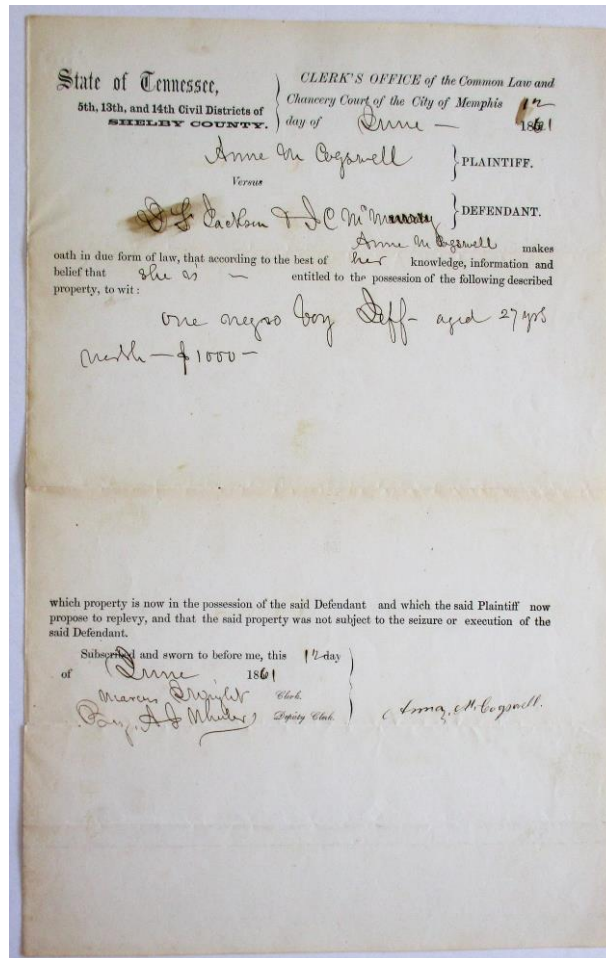 State of Tennessee,
5th, 13th, and 14th Civil Districts of
SHELBY COUNTY.
CLERK'S OFFICE of the Common Law and
Chancery Court of the City of Memphis 12
day of June — 1861
Anne M Cogswell PLAINTIFF.
Versus
Jackson & J C McMurray DEFENDANT.
Anne M Cogswell makes
oath in due form of law, that according to the best of her knowledge, information and
belief that she is — entitled to the possession of the following described
property, to wit:
one negro boy Jeff — aged 27 yrs
worth — $1000 —
which property is now in the possession of the said Defendant and which the said Plaintiff now
propose to replevy, and that the said property was not subject to the seizure or execution of the
said Defendant.
Subscribed and sworn to before me, this 12 day
of June 1861
Marcus J Wright Clerk.
By A S Wheeler Deputy Clerk.
Anna M. Cogswell.